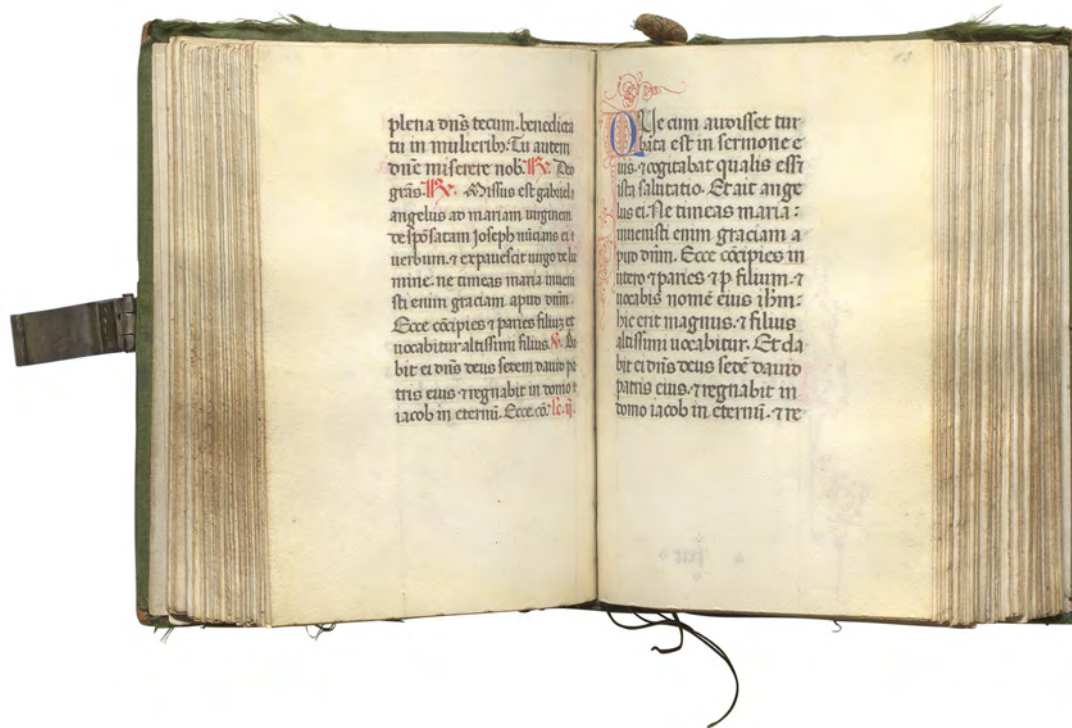 plena dn̄s tecum. benedicta
tu in mulierib3. Tu autem
dn̄e miserere nob̄. R̄. Deo
gr̄as. R̄. Missus est gabriel
angelus ad mariam uirginem
desp̄osatam ioseph nūcians ei
uerbum. ⁊ expauescit uirgo de lu
mine. ne timeas maria inueni
sti enim graciam apud dn̄m.
Ecce cōcipies ⁊ paries filiuz et
uocabitur altissimi filius. V̄. Da
bit ei dn̄s deus sedem dauid pa
tris eius ⁊ regnabit in domo
iacob in eternū. Ecce. cō. lc. ij.
Que cum audisset tur
bata est in sermone e
ius. ⁊ cogitabat qualis esset
ista salutatio. Et ait ange
lus ei. Ne timeas maria:
inuenisti enim graciam a
pud dn̄m. Ecce cōcipies in
utero ⁊ paries ⁊ p̄ filium. ⁊
uocabis nomē eius ih̄m.
hic erit magnus. ⁊ filius
altissimi uocabitur. Et da
bit ei dn̄s deus sedē dauid
patris eius. ⁊ regnabit in
domo iacob in eternū. ⁊ re